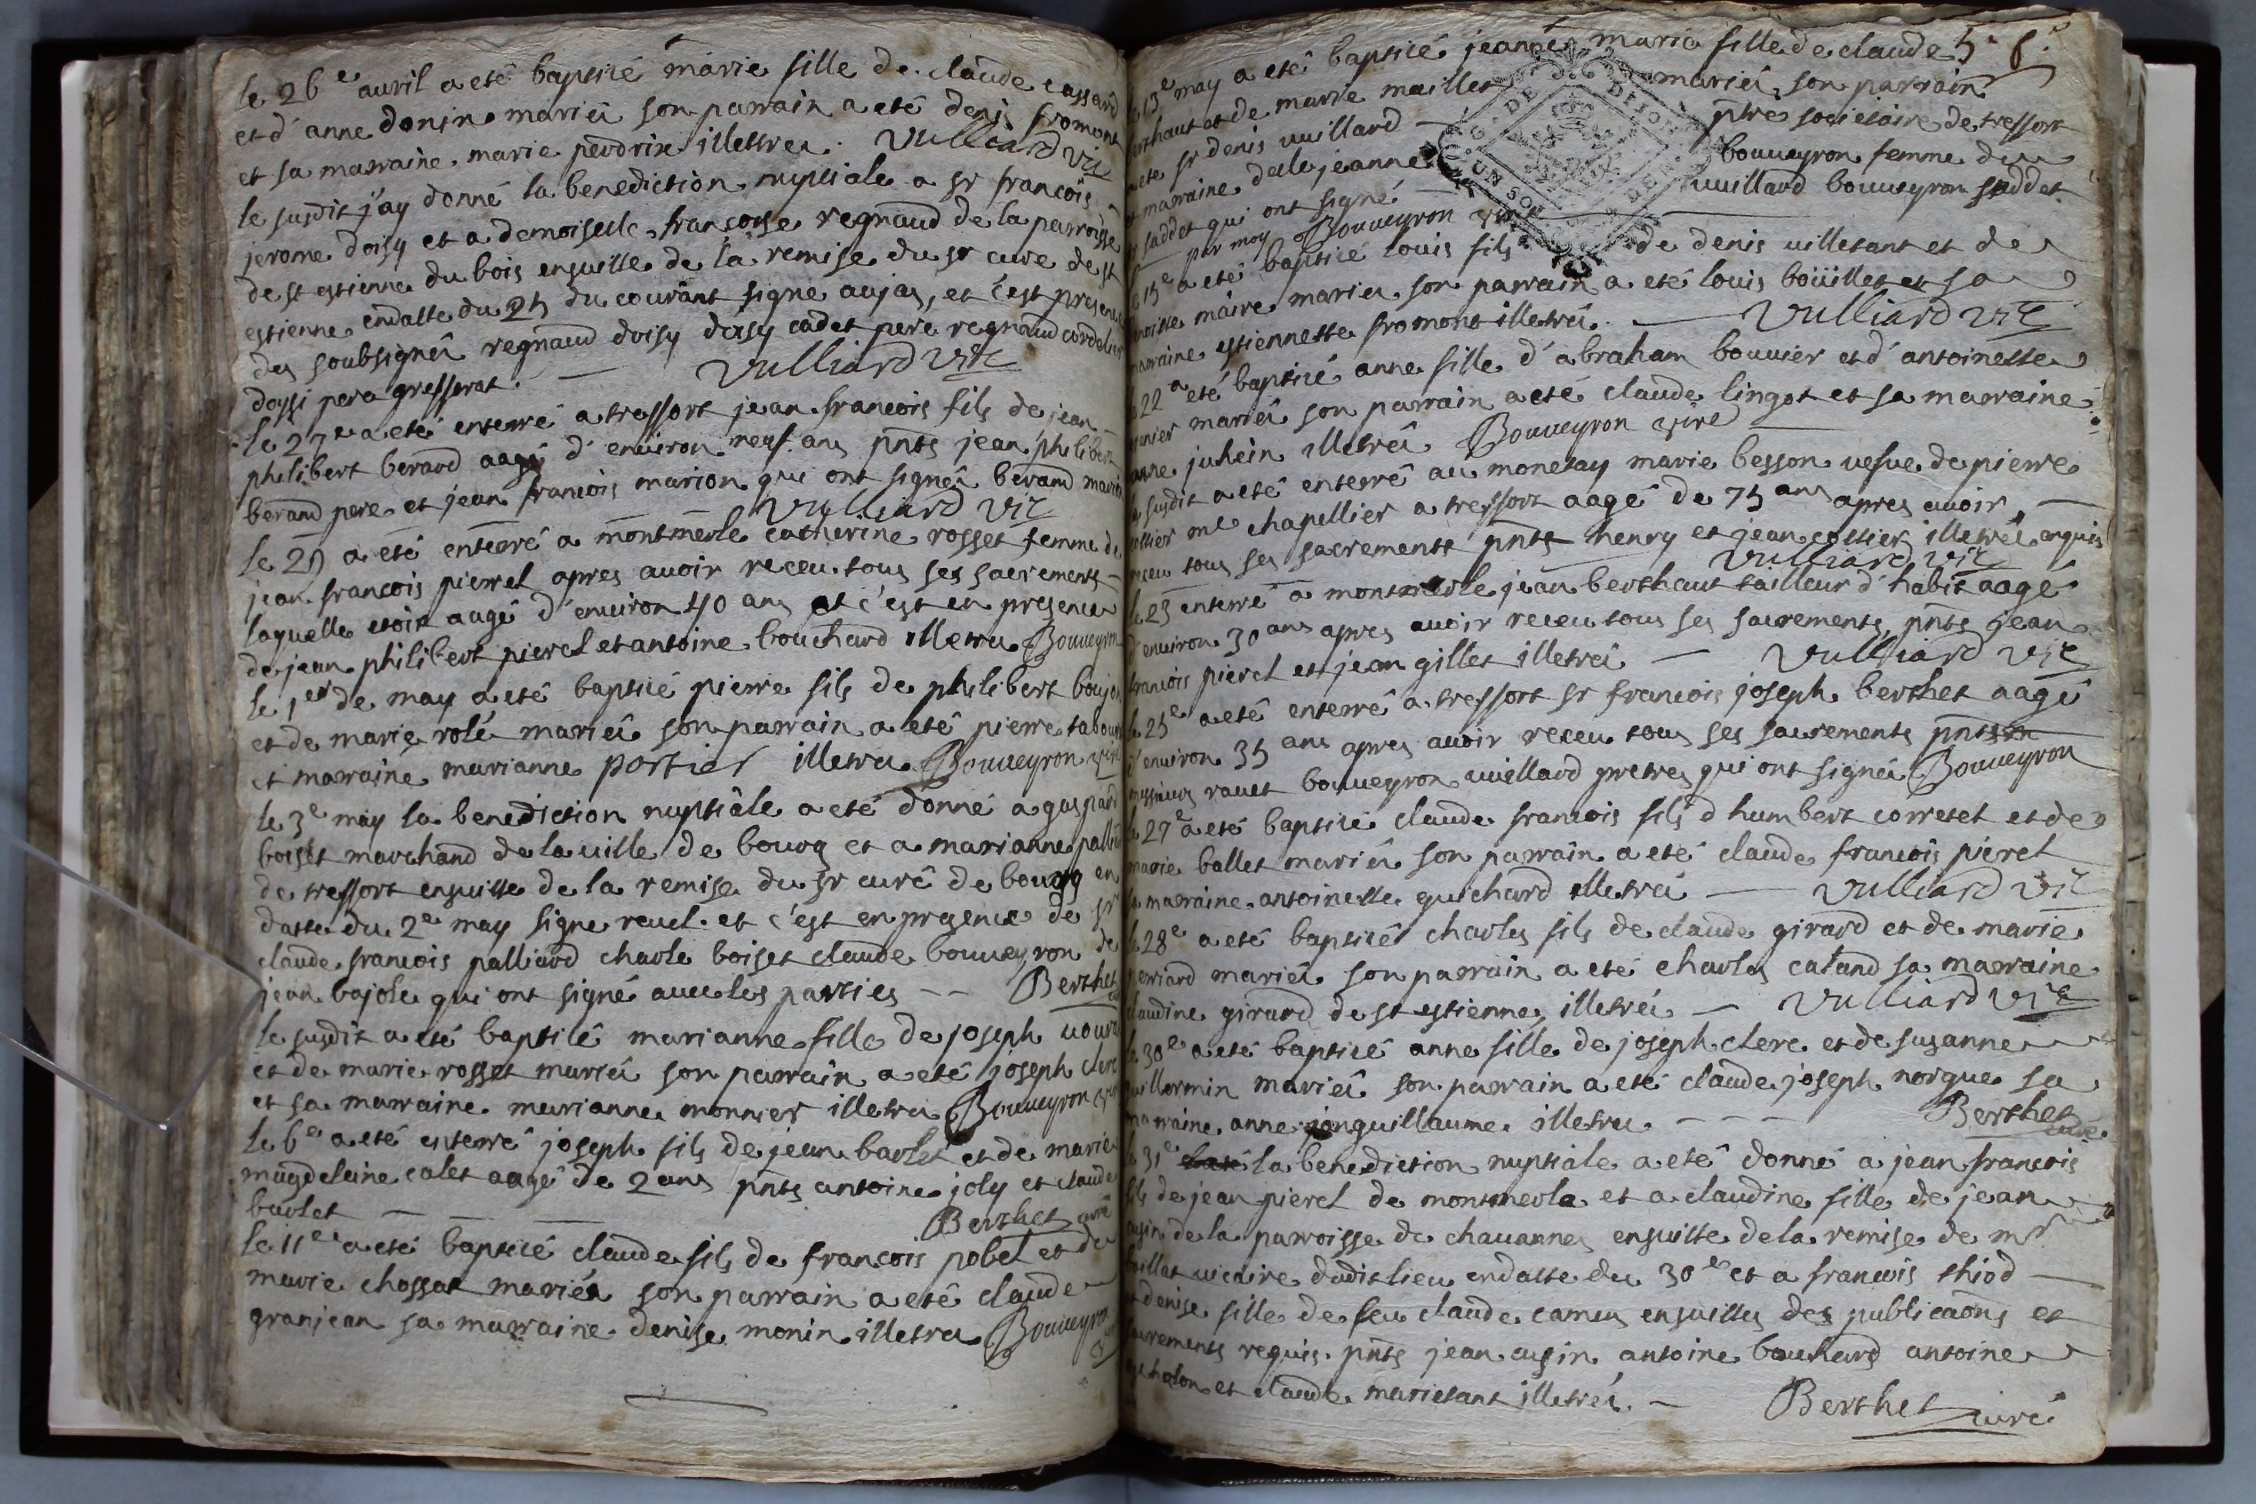 le 26e avril a eté baptisé marie fille de claude cassard
et d'anne donin mariéz son parrain a eté denis fromont
et sa marraine marie perdrix illettrez. Vulliard vic
le susdit j'ay donné la benediction nuptiale a sr francois
jerome doisy et a demoiselle francoise regnaud de la parroisse
de st estienne du bois ensuitte de la remise du sr curé de st
estienne endatte du 25 du courant signé aujas, et c'est presence
des soubsignéz regnaud doisy doisy cadet pere regnaud cordelier
doysi pere gresserat. Vulliard vic
le 27e a eté enterré a tressort jean francois fils de jean
philibert berard aagé d'environ neuf ans pnts jean philibert
berard pere et jean francois marion qui ont signéz berard marion
Vulliard vic
le 29 a eté enterré a montmerle catherine rosset femme de
jean francois pierrel apres avoir receu tous ses sacrements
laquelle etoit aagé d'environ 40 ans et c'est en presence
de jean philibert pierel et antoine bouchard illetrez Bouveyron
le 1er de may a eté baptisé pierre fils de philibert boujon
et de marie rolé mariéz son parrain a eté pierre tabour
et marraine marianne portier illetrez Bouveyron vire
le 3e may la benediction nuptiale a eté donné a gaspard
boisset marchand de la ville de bourg et a marianne palliard
de tressort ensuitte de la remise du sr curé de bourg en
datte du 2e may signé revel. et c'est en presence de sr
claude francois palliard charle boiset claude bouveyron de
jean bajole qui ont signé avec les parties -- Berthet
le susdit a eté baptisé marianne fille de joseph
et de marie rosset mariéz son parrain a eté joseph clerc
et sa marraine marianne monnier illetrez Bouveyron vire
le 6e a eté enterré joseph fils de jean barlet et de marie
magdeleine calet aagé de 2 ans pnts antoine joly et claude
barlet Berthet curé
le 11e a eté baptisé claude fils de francois pobel et de
marie chossat mariéz son parrain a eté claude
granjean sa marraine denise monin illetrez Bouveyron
5. 6.
le 13e may a eté baptisé jeanne marie fille de claude
berthaut et de marie maillet mariéz, son parrain
a eté sr denis vuillard ptre societaire de tressort
et marraine delle jeanne bouveyron femme du
sr saddet qui ont signé vuillard bouveyron saddet
par moy Bouveyron vire
le 15e a eté baptisé louis fils de denis villetant et de
benoitte maire mariéz son parrain a eté louis boüillet et sa
marraine estiennette fromont illetréz. Vulliard vic
le 22 a eté baptisé anne fille d'abraham bouvier et d'antoinette
mariéz son parrain a eté claude lingot et sa marraine
anne juhein illetréz Bouveyron vire
le susdit a eté enterré au monetay marie besson vefve de pierre
cottier me chapellier a tressort aagé de 75 ans apres avoir
receu tous ses sacrements pnts henry et jean cottier illetréz enquis
Vulliard vic
le 23 enterré a montmerle jean berthaut tailleur d'habit aagé
d'environ 30 ans apres avoir receu tous ses sacrements, pnts jean
francois pierel et jean gillet illetréz Vulliard vic
le 25e a eté enterré a tressort sr francois joseph berthet aagé
d'environ 35 ans apres avoir receu tous ses sacrements pnts
messieurs ravet bouveyron vuillard pretres qui ont signéz Bouveyron
le 27e a eté baptisé claude francois fils d humbert corretet et de
marie ballet mariéz son parrain a eté claude francois pierel
la marraine antoinette guichard illetréz Vulliard vic
le 28e a eté baptisé charles fils de claude girard et de marie
perriard mariéz son parrain a eté charles caland sa marraine
claudine girard de st estienne, illetréz Vulliard vic
le 30e a eté baptisé anne fille de joseph clerc et de susanne
guillermin mariéz son parrain a eté claude joseph norgue sa
marraine anne janguillaume illetrez Berthet curé
le 31e la benediction nuptiale a eté donné a jean francois
fils de jean pierel de montmerle et a claudine fille de jean
cusin de la parroisse de chavannes ensuitte de la remise de mr
vicaire dudit lieu endatte du 30e et a francois thiod
et denise fille de feu claude camus ensuittes des publicaons et
sacrements requis. pnts jean cusin antoine bouchard antoine
et claude marietant illetréz. Berthet curé